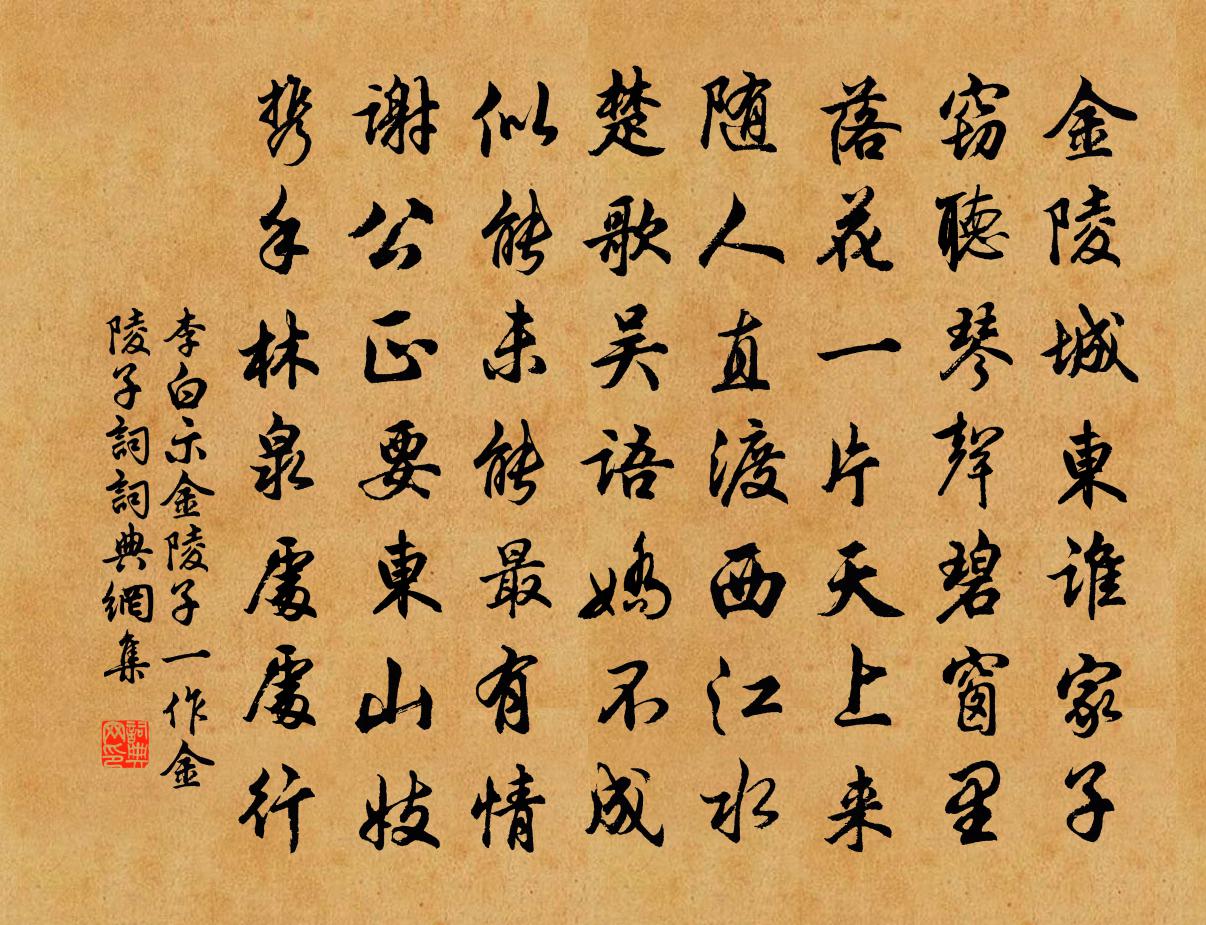 金陵城東谁家子
窈聽琴聲碧窗里
落花一片天上来
随人直渡西江水
楚歌吴語嬌不成
似能未能最有情
謝公正要東山妓
携手林泉處處行
李白示金陵子一作金
陵子詞詞典網集
詞典
网印